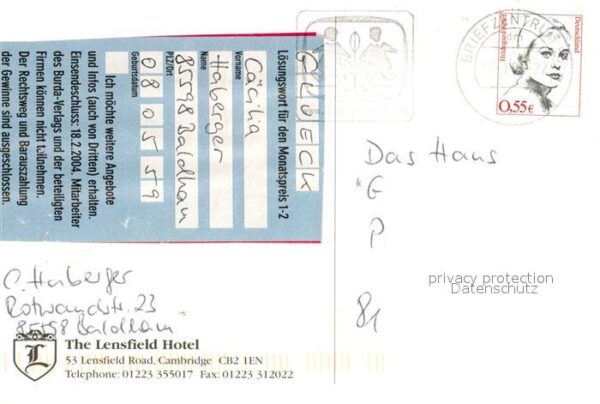 Lösungswort für den Monatspreis 1-2
GLUECK
Vorname
Cäcilia
Name
Haberger
PLZ/Ort
85598 Baldham
Geburtsdatum
08 05 59
Ich möchte weitere Angebote
und Infos (auch von Dritten) erhalten.
Einsendeschluss: 18.2.2004. Mitarbeiter
des Burda-Verlags und der beteiligten
Firmen können nicht teilnehmen.
Der Rechtsweg und Barauszahlung
der Gewinne sind ausgeschlossen.
BRIEFZENTRUM
Deutschland
0,55€
Das Haus
P
81
privacy protection
Datenschutz
C. Haberger
Rotwandstr. 23
85598 Baldham
L
The Lensfield Hotel
53 Lensfield Road, Cambridge CB2 1EN
Telephone: 01223 355017 Fax: 01223 312022